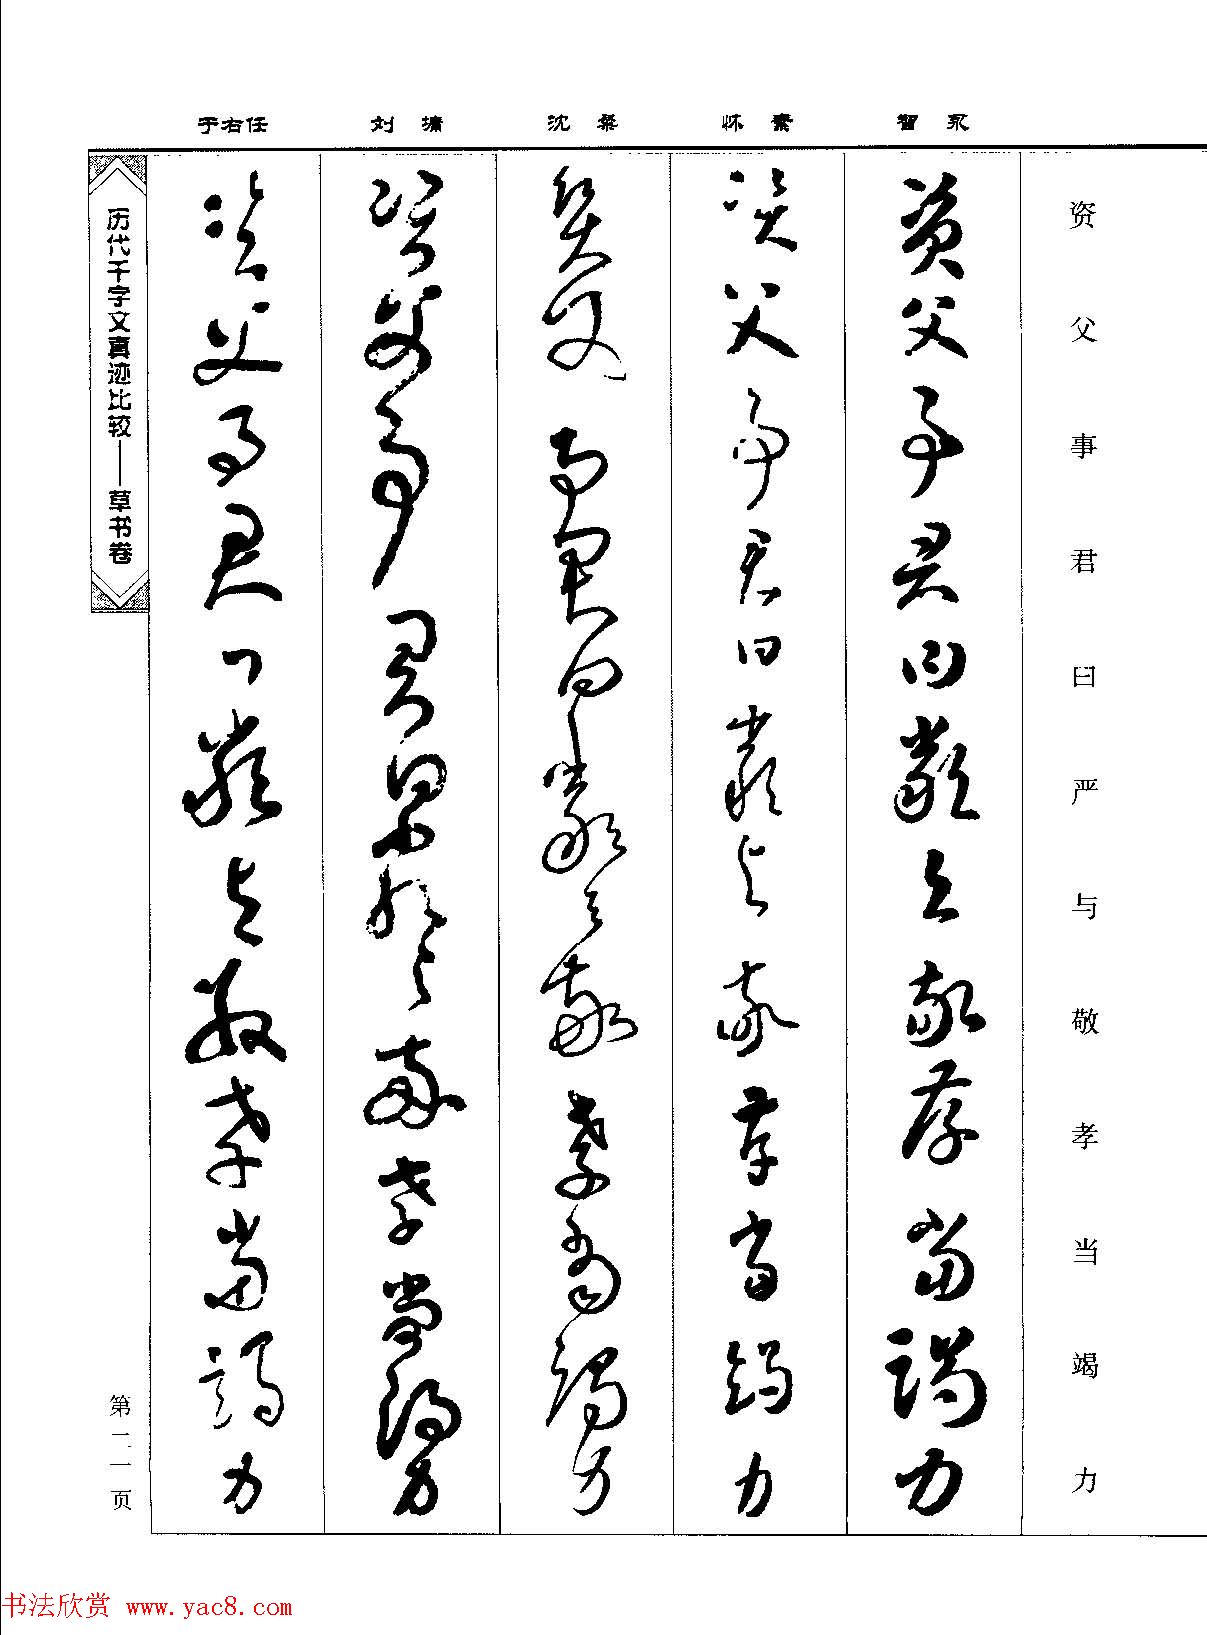 智永
怀素
沈粲
刘墉
于右任
资父事君曰严与敬孝当竭力
资父事君曰严与敬孝当竭力
资父事君曰严与敬孝当竭力
资父事君曰严与敬孝当竭力
资父事君曰严与敬孝当竭力
资父事君曰严与敬孝当竭力
历代千字文真迹比较——草书卷
第二一页
书法欣赏 www.yac8.com